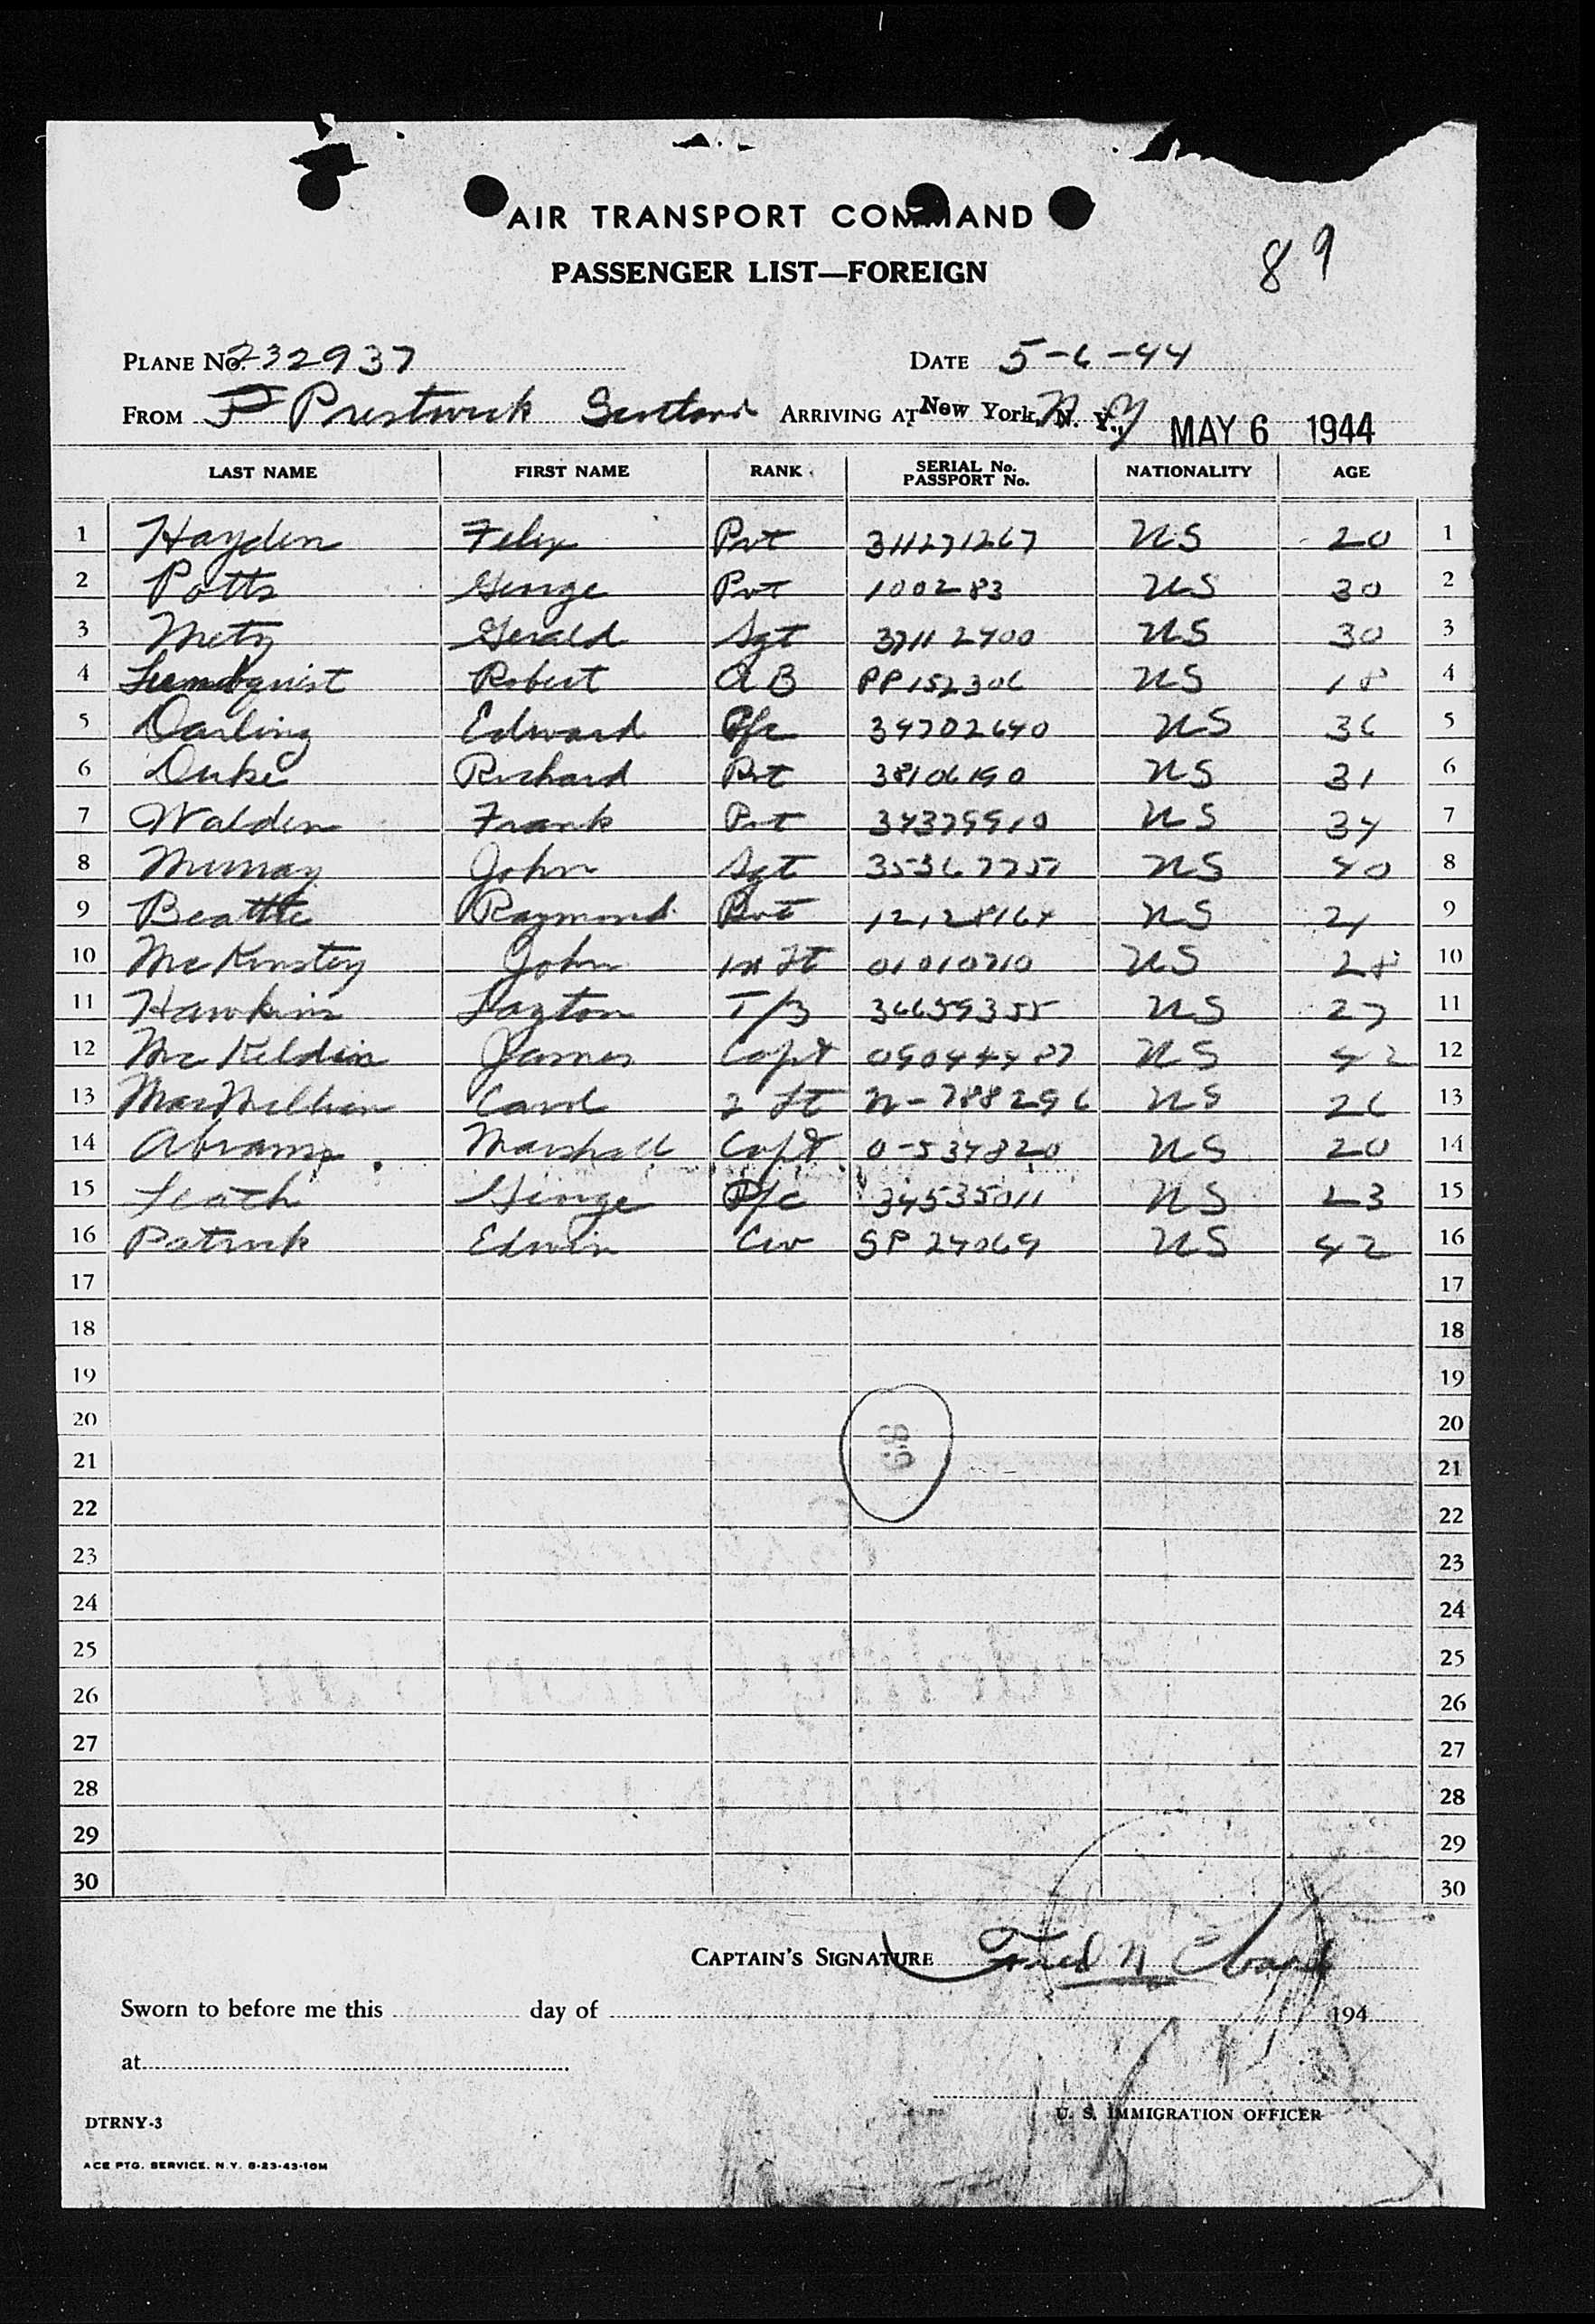 AIR TRANSPORT COMMAND
PASSENGER LIST—FOREIGN
89
PLANE No. 232937 DATE 5-6-44
FROM Prestwick Scotland ARRIVING AT New York, N. Y., N.Y MAY 6 1944
LAST NAME FIRST NAME RANK SERIAL No. PASSPORT No. NATIONALITY AGE
1 Hayden Felix Pvt 311271267 US 20 1
2 Potts George Pvt 100283 US 30 2
3 Metz Gerald Sgt 37112700 US 30 3
4 Lundquist Robert AB PP152306 US 18 4
5 Darling Edward Pfc 34702640 US 36 5
6 Duke Richard Pvt 38106190 US 31 6
7 Walden Frank Pvt 34379910 US 34 7
8 Murray John Sgt 35367757 US 40 8
9 Beattie Raymond Pvt 12128164 US 21 9
10 McKinstry John 1st Lt 01010710 US 28 10
11 Hawkins Layton T/3 36659355 US 27 11
12 McKeldin James Capt 09044487 US 42 12
13 MacMillian Carol 2 Lt N-788296 US 26 13
14 Abrams Marshall Capt 0-534820 US 20 14
15 Leath George Pfc 34535011 US 23 15
16 Patrick Edwin Civ SP 24069 US 42 16
17 17
18 18
19 19
20 20
89
21 21
22 22
23 23
24 24
25 25
26 26
27 27
28 28
29 29
30 30
CAPTAIN'S SIGNATURE Fred N
Sworn to before me this day of 194
at
U. S. IMMIGRATION OFFICER
DTRNY-3
ACE PTG. SERVICE. N.Y. 8-23-43-10M